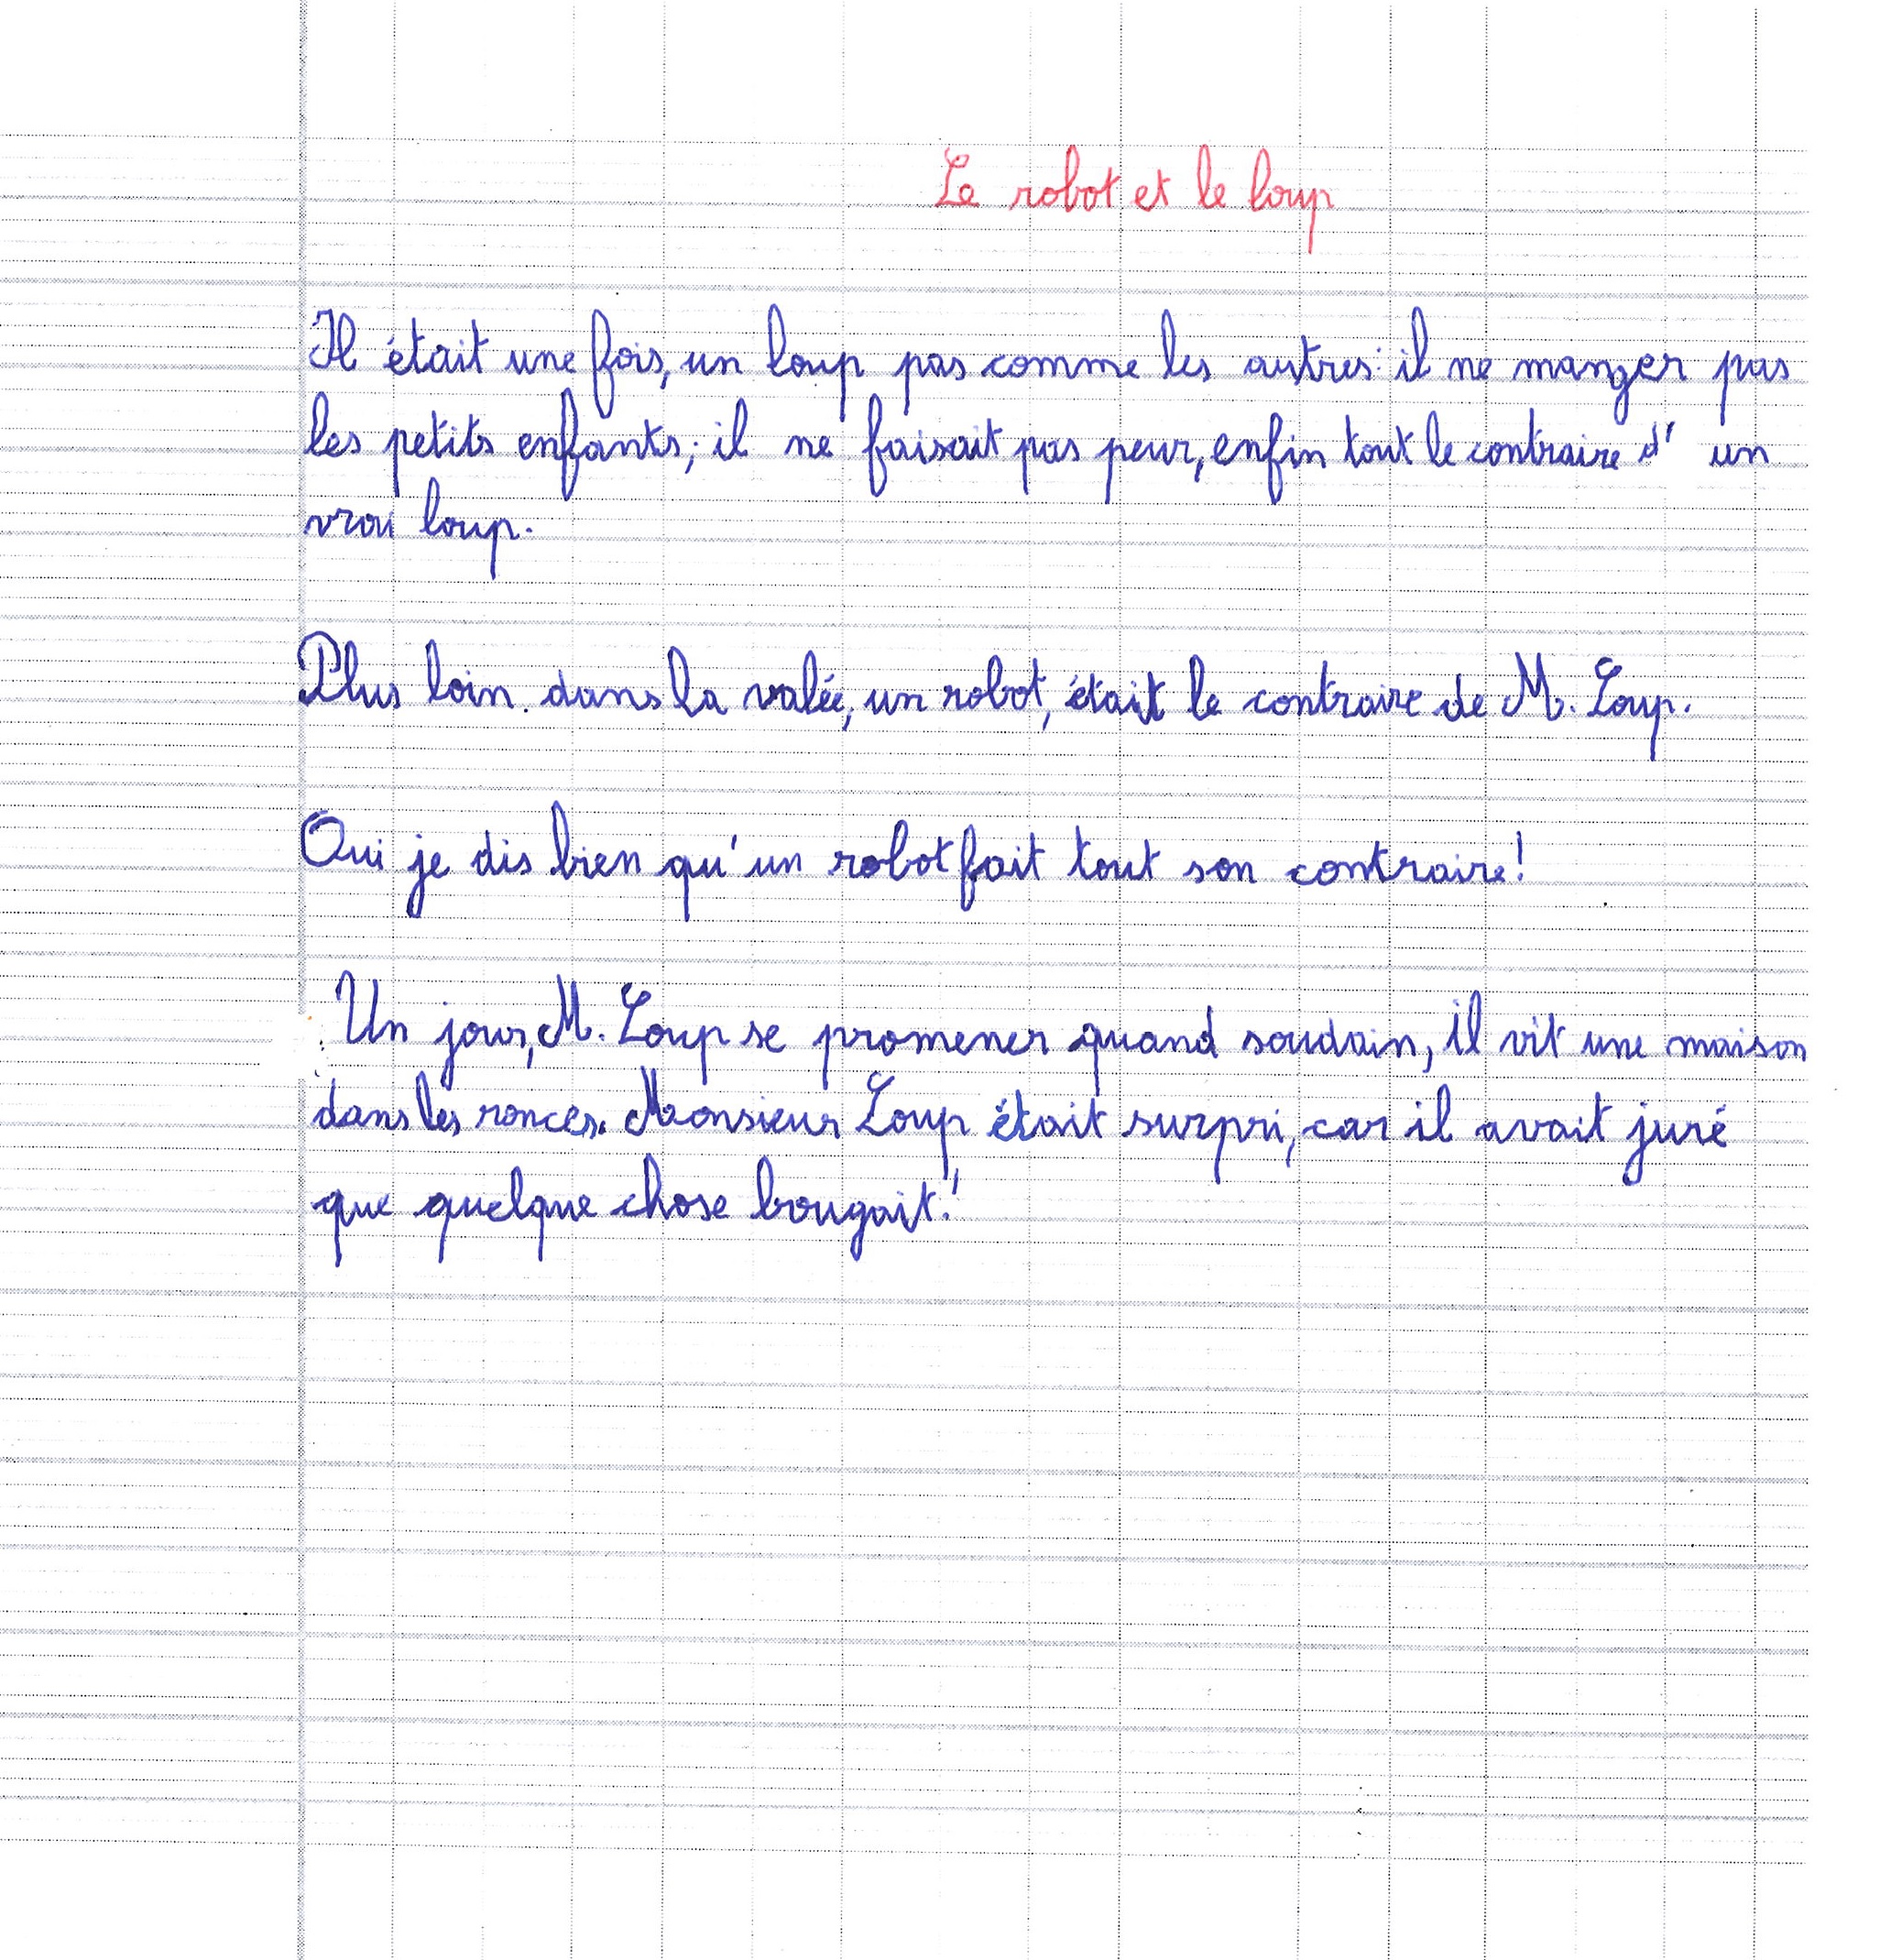 Le robot et le loup
Il était une fois, un loup pas comme les autres: il ne manger pas
les petits enfants; il ne faisait pas peur, enfin tout le contraire d' un
vrai loup.
Plus loin. dans la valée, un robot, était le contraire de M. Loup.
Oui je dis bien qu'un robot fait tout son contraire!
Un jour, M. Loup se promener quand soudain, il vit une maison
dans les ronces. Monsieur Loup était surpri, car il avait juré
que quelque chose bougait!